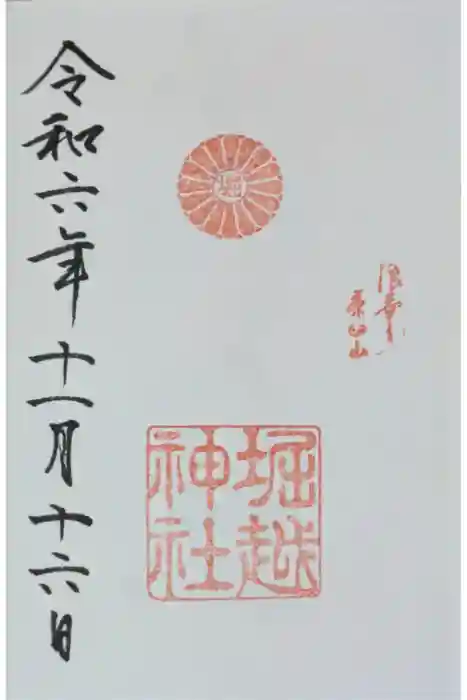 堀
堀越
神社
令和六年十一月十六日